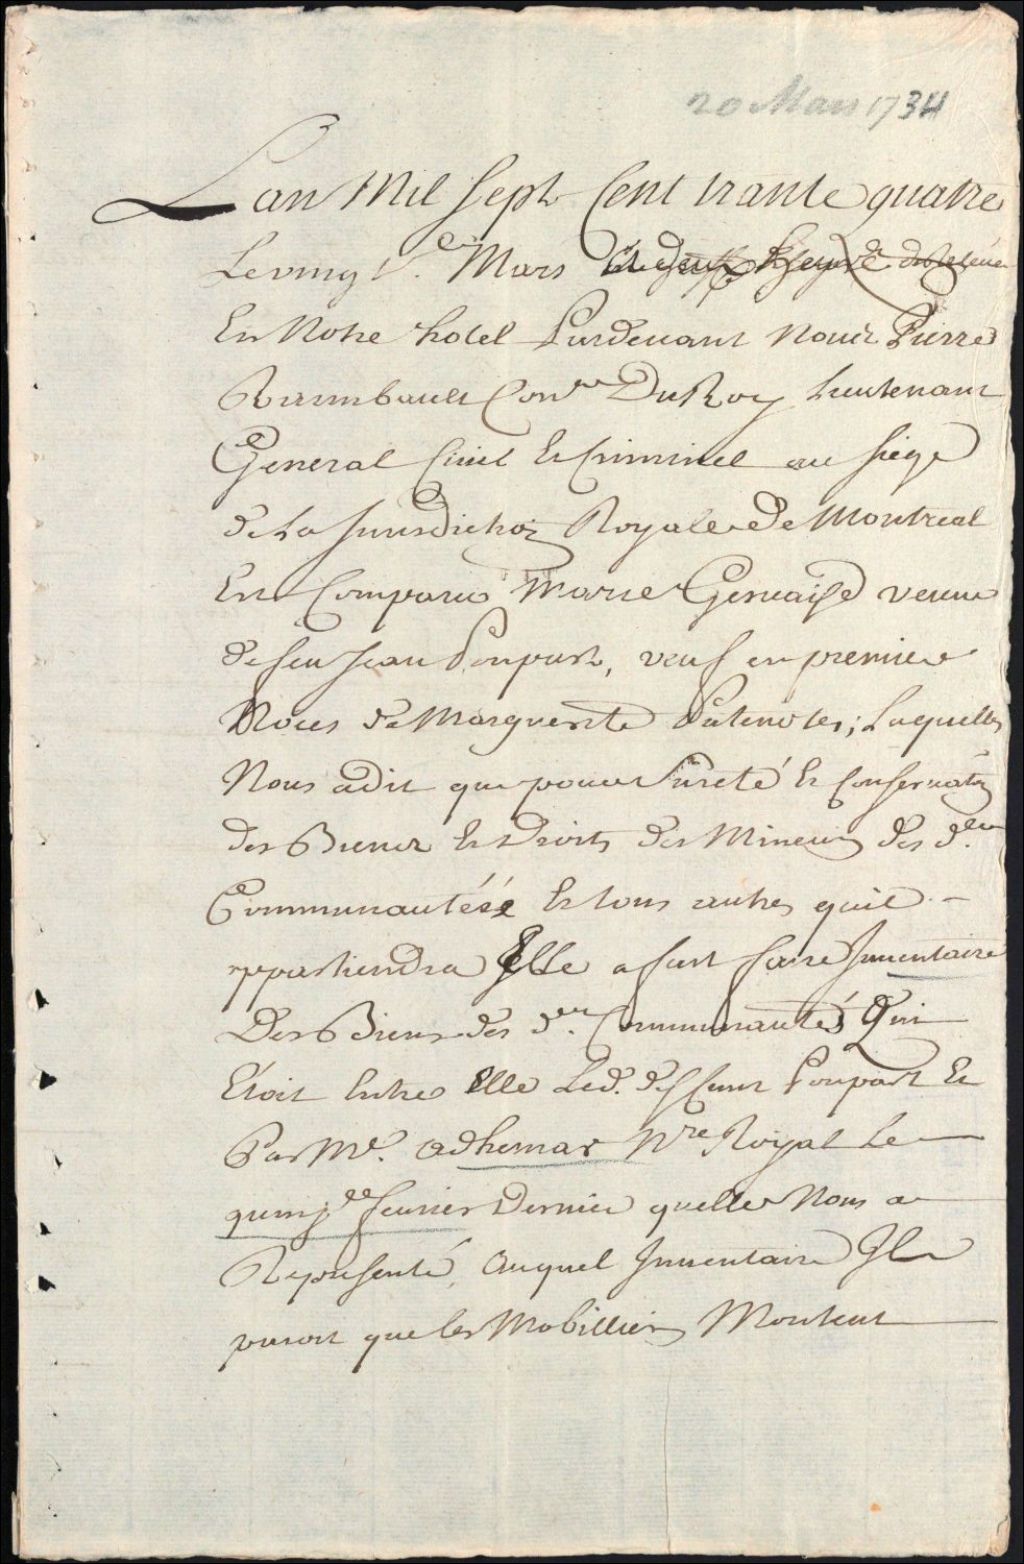 20 Mars 1734
Lan Mil Sept Cent trante quatre
Le vingt.e Mars
En Notre hotel Pardevant Nous Pierre
Raimbault Con.er Du Roy Lieutenant
General Civil Et Criminel au siege
de La Jurisdiction Royalle de Montreal
Est Comparue Marie Gervaise veuve
de feu Jean Poupart, veuf en premiere
Noces de Marguerite Patenotes; Laquelle
Nous adit que pour sureté Et Conservaton
des Biens Et Droits des Mineurs des d.es
Communautés Et tous autres quil
appartiendra Elle a fait faire Inventaire
Des Biens des d.es Communautés Qui
Etoit Entre Elle Led. deffunt Poupart Et
Par M.e Adhemar N.re Royal Le
quinz.e fevrier Dernier quelle Nous a
Representé, Auquel Inventaire Il
paroit que les Mobilliers Montent